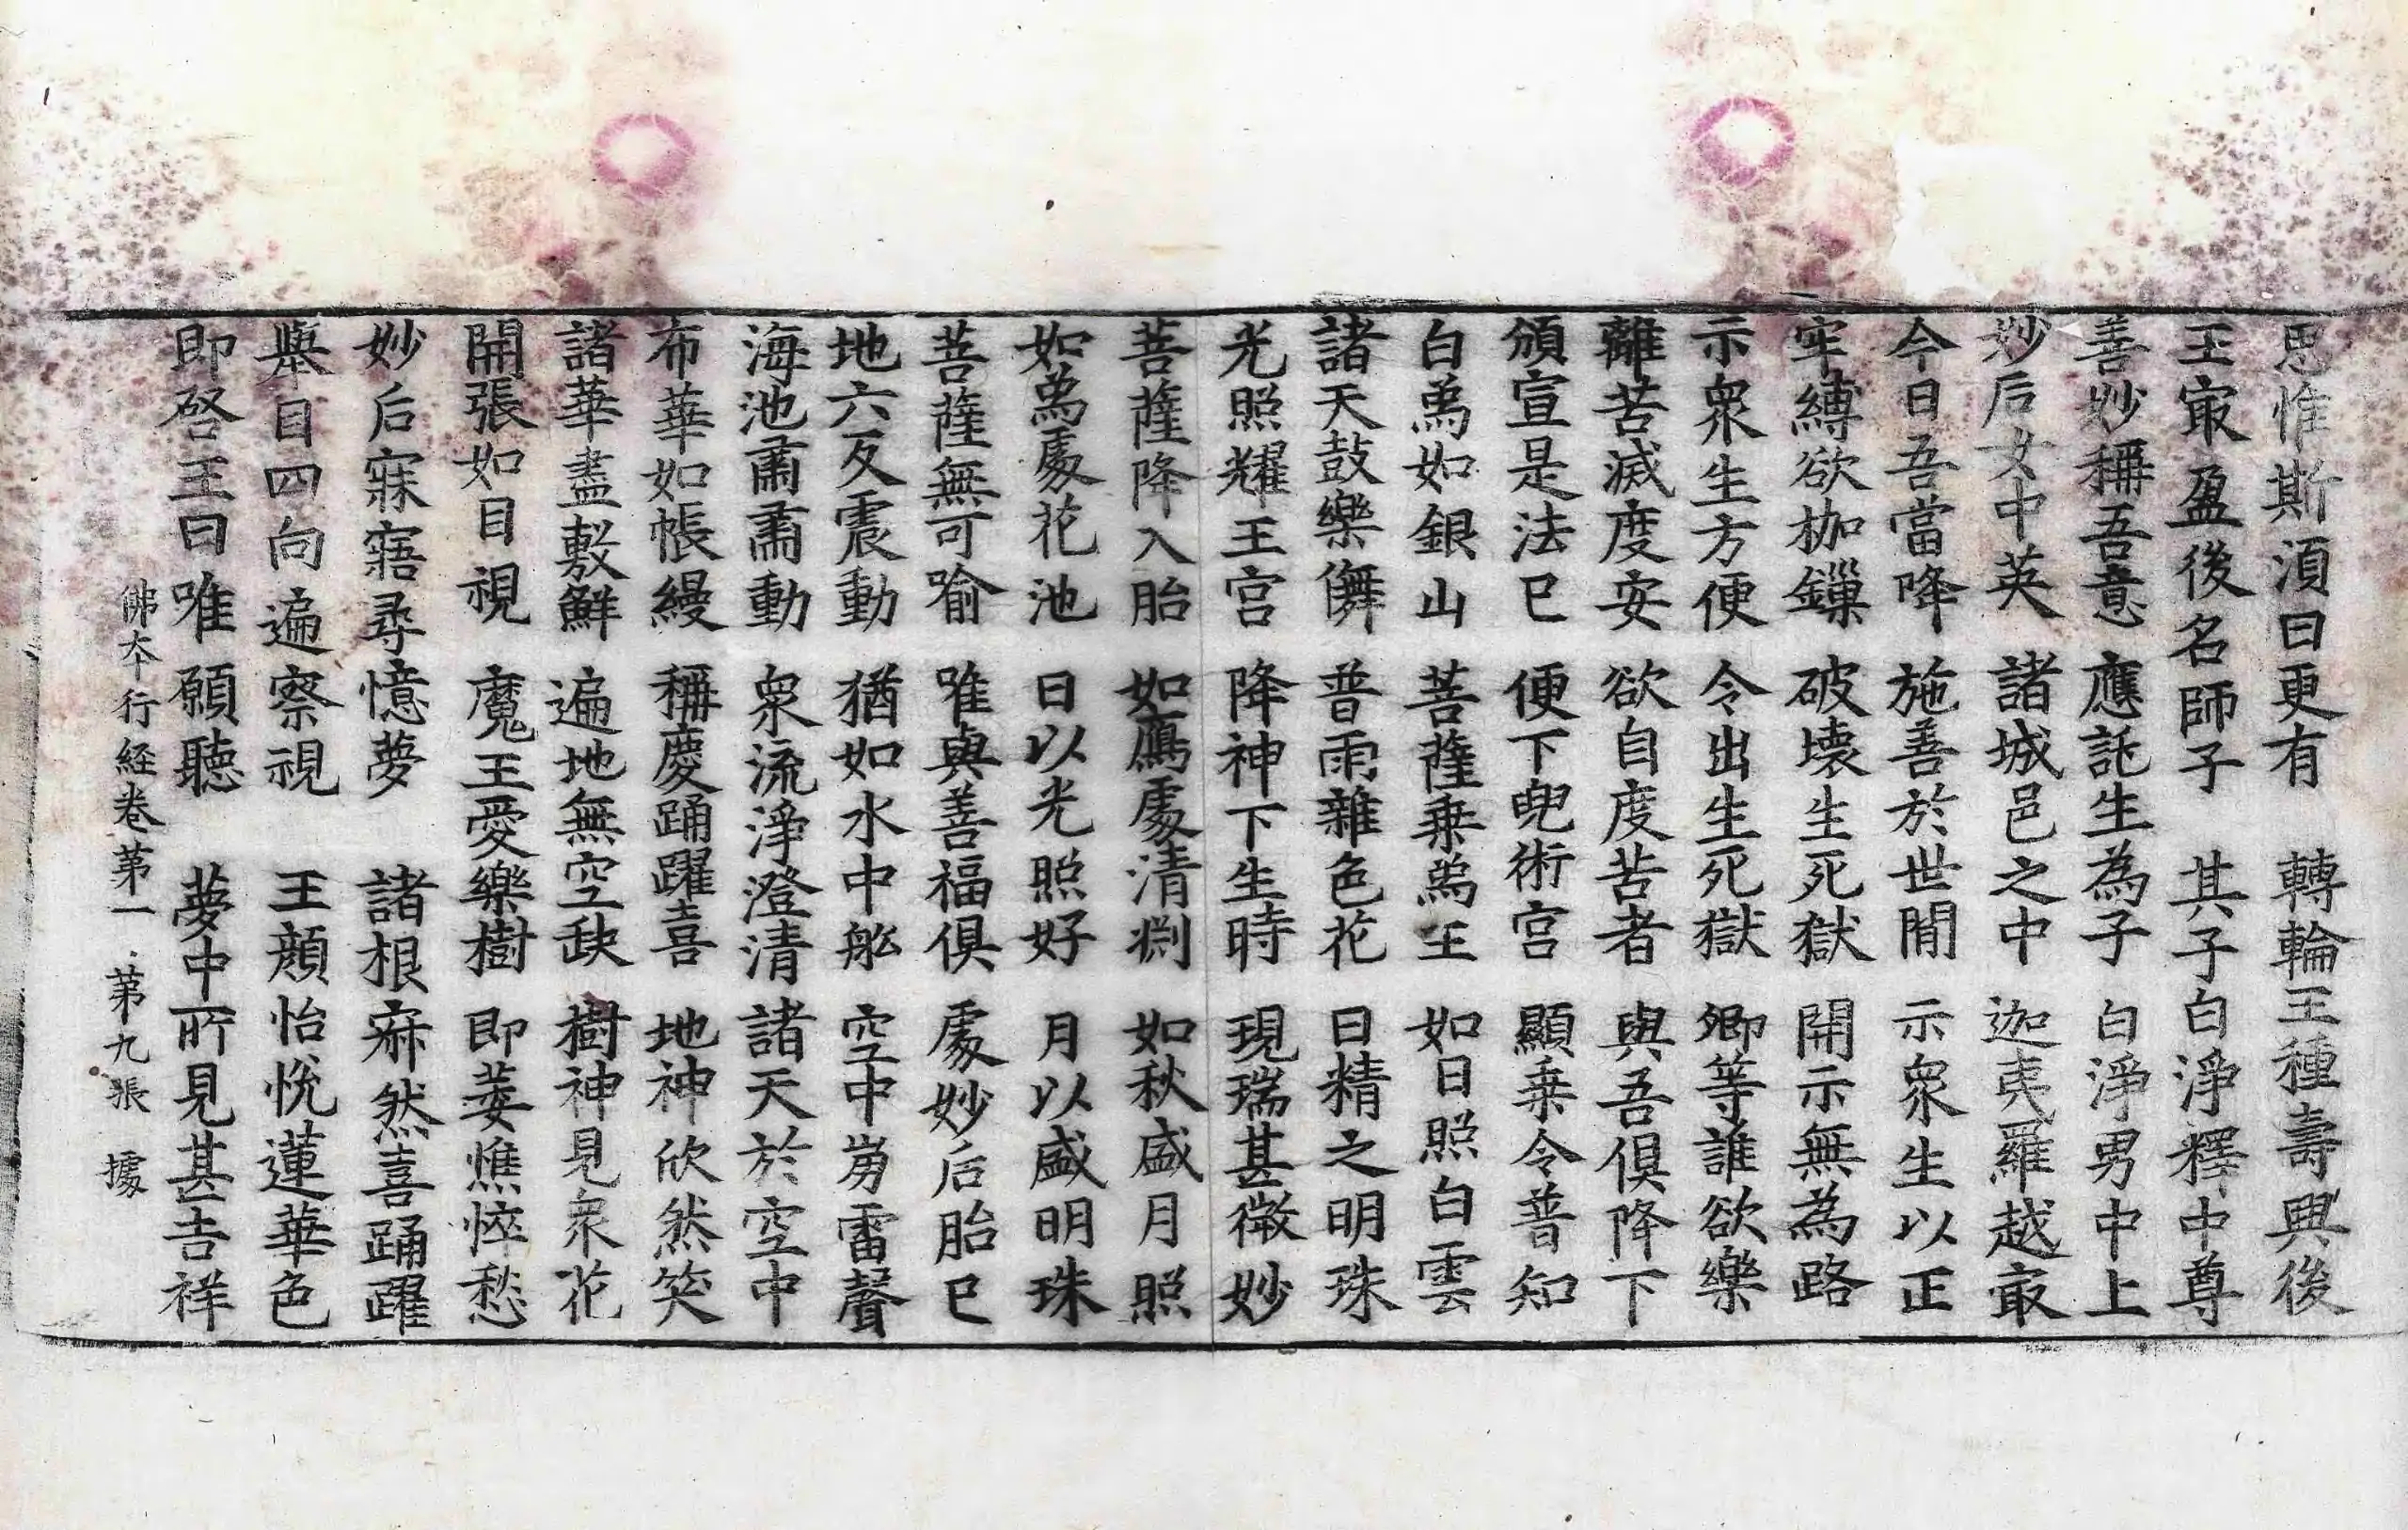 思惟斯須曰更有 轉輪王種壽興後
王㝡盈後名師子 其子白淨釋中尊
善妙稱吾意 應託生為子 白淨男中上
妙后女中英 諸城邑之中 迦夷羅越㝡
今日吾當降 施善於世閒 示衆生以正
牢縛欲枷鏁 破壞生死獄 開示無為路
示衆生方便 令出生死獄 卿等誰欲樂
離苦滅度安 欲自度苦者 與吾俱降下
頒宣是法已 便下兜術宮 顯乗令普知
白為如銀山 菩薩乗為王 如日照白雲
諸天鼓樂儛 普雨雜色花 日精之明珠
光照耀王宮 降神下生時 現瑞甚微妙
菩薩降入胎 如鴈處清渕 如秋盛月照
如為處花池 日以光照好 月以盛明珠
菩薩無可喻 唯與善福俱 處妙后胎已
地六反震動 猶如水中舩 空中崩雷聲
海池肅肅動 衆流淨澄清 諸天於空中
布華如帳縵 稱慶踊躍喜 地神欣然笑
諸華盡敷鮮 遍地無空缺 樹神見衆花
開張如目視 魔王愛樂樹 即萎憔悴愁
妙后寐寤尋憶夢 諸根寂然喜踊躍
擧目四向遍察視 王顔怡悅蓮華色
即啓王曰唯願聽 夢中所見甚吉祥
佛夲行経卷第一 第九張 據